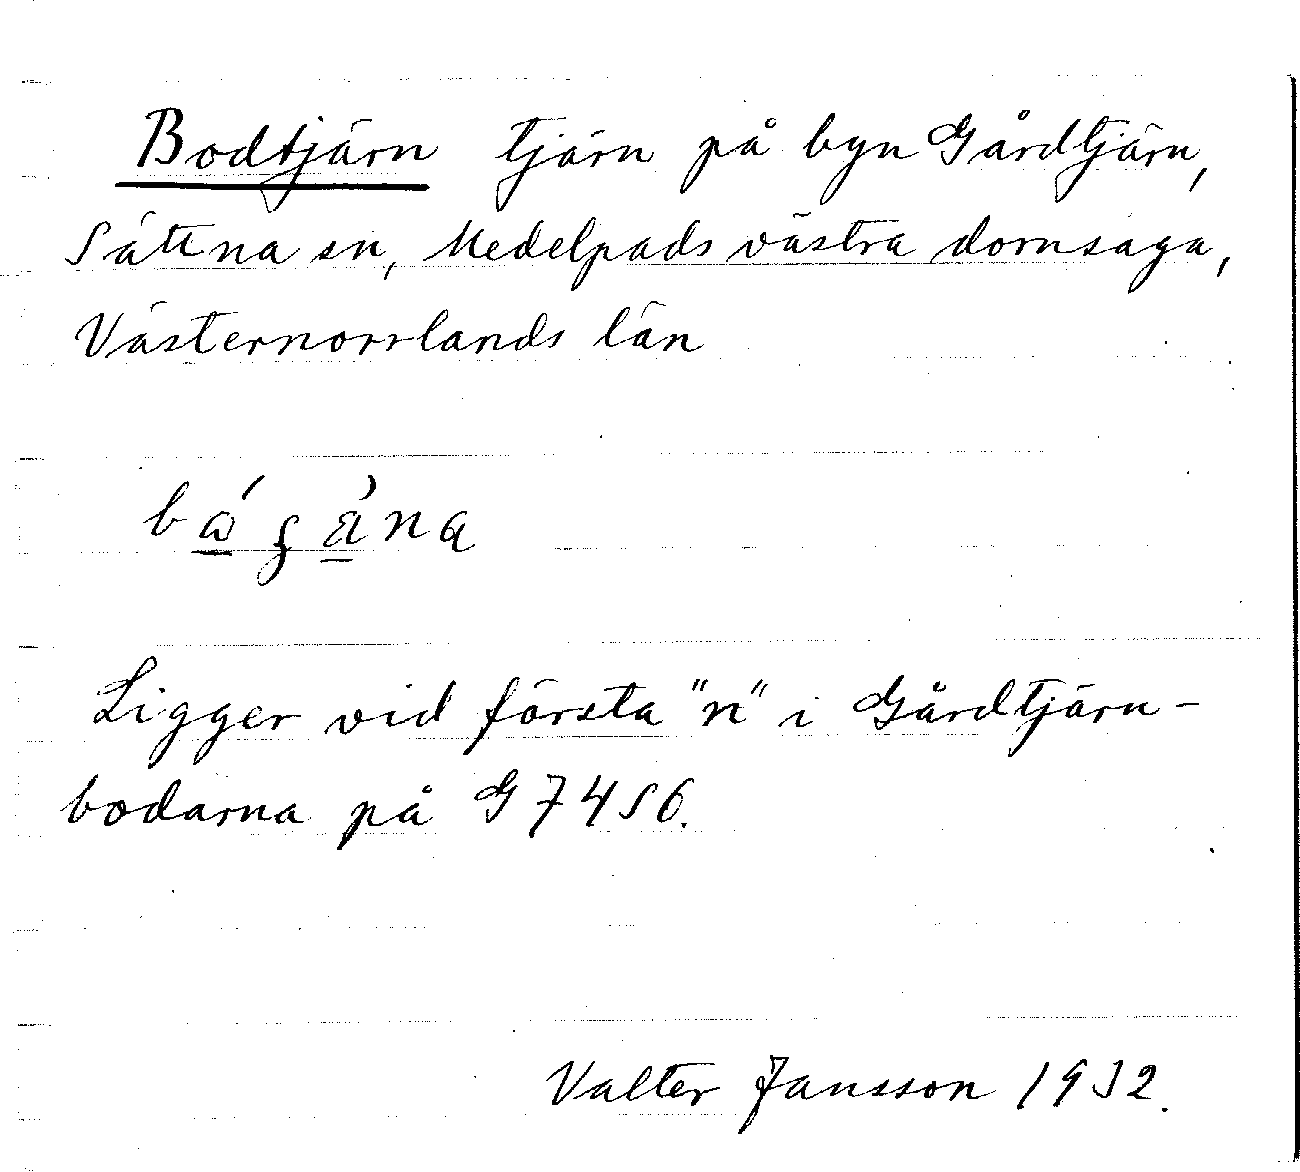 Bodtjärn tjärn på byn Gårdtjärn,
Sättna sn, Medelpads västra domsaga,
Västernorrlands län
Ligger vid första "n" i Gårdtjärn-
bodarna på G 7456.
Valter Jansson 1932.